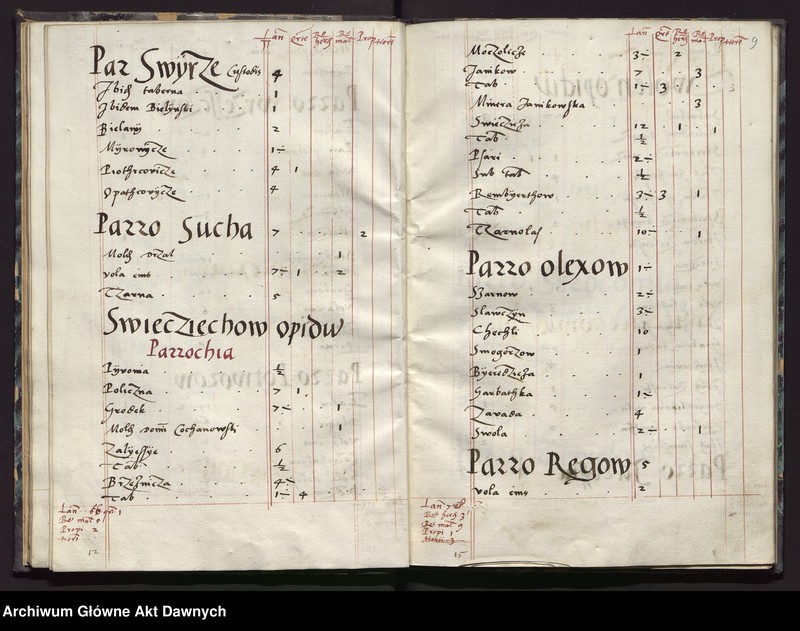 Lan̄ Orte Prop Hort
Par Swyrze Custodis 4
Ibid taberna 1
Ibidem Bielynski 1
Bielawy 2
Myrowycze 1÷
Piothrcovicze 4 1
Opathcovycze 4
Parro Sucha 7 2
Mold 1
vola eius 7÷ 1 2
Czarna 5
Swiecziechow opidu
Parrochia
Pyrona ½
Policzna 7 1
Grodek 7÷ 1
Mold Cochanowski 1
Zalyessye 6
Tab ½
Brzeznicza 4÷
Tab 1÷ 4
Lan̄ 66
Ret mat 9
Propi 2
12
Lan̄ Ort Prop Hort 9
Moczolicze 3÷ 2
Janikow 7 3
Tab 1÷ 3 3
Minera Janikowska 3
Swieczicza 12 1 1
Tab ½
Psari 2÷
Sub tab ½
Rembyerthow 3÷ 3 1
Tab ½
Czarnolas 10÷ 1
Parro Olexow 1÷
Szarnow 2÷
Slawczyn 3÷
Chechli 10
Smogorzow 1
Byeredzicha 1
Garbathka 1÷
Zavada 4
Swola 2÷ 1
Parro Regow 5
vola eius 2
Lan̄
Ret horg 3
Ret mat 9
Propi 1
15
Archiwum Główne Akt Dawnych